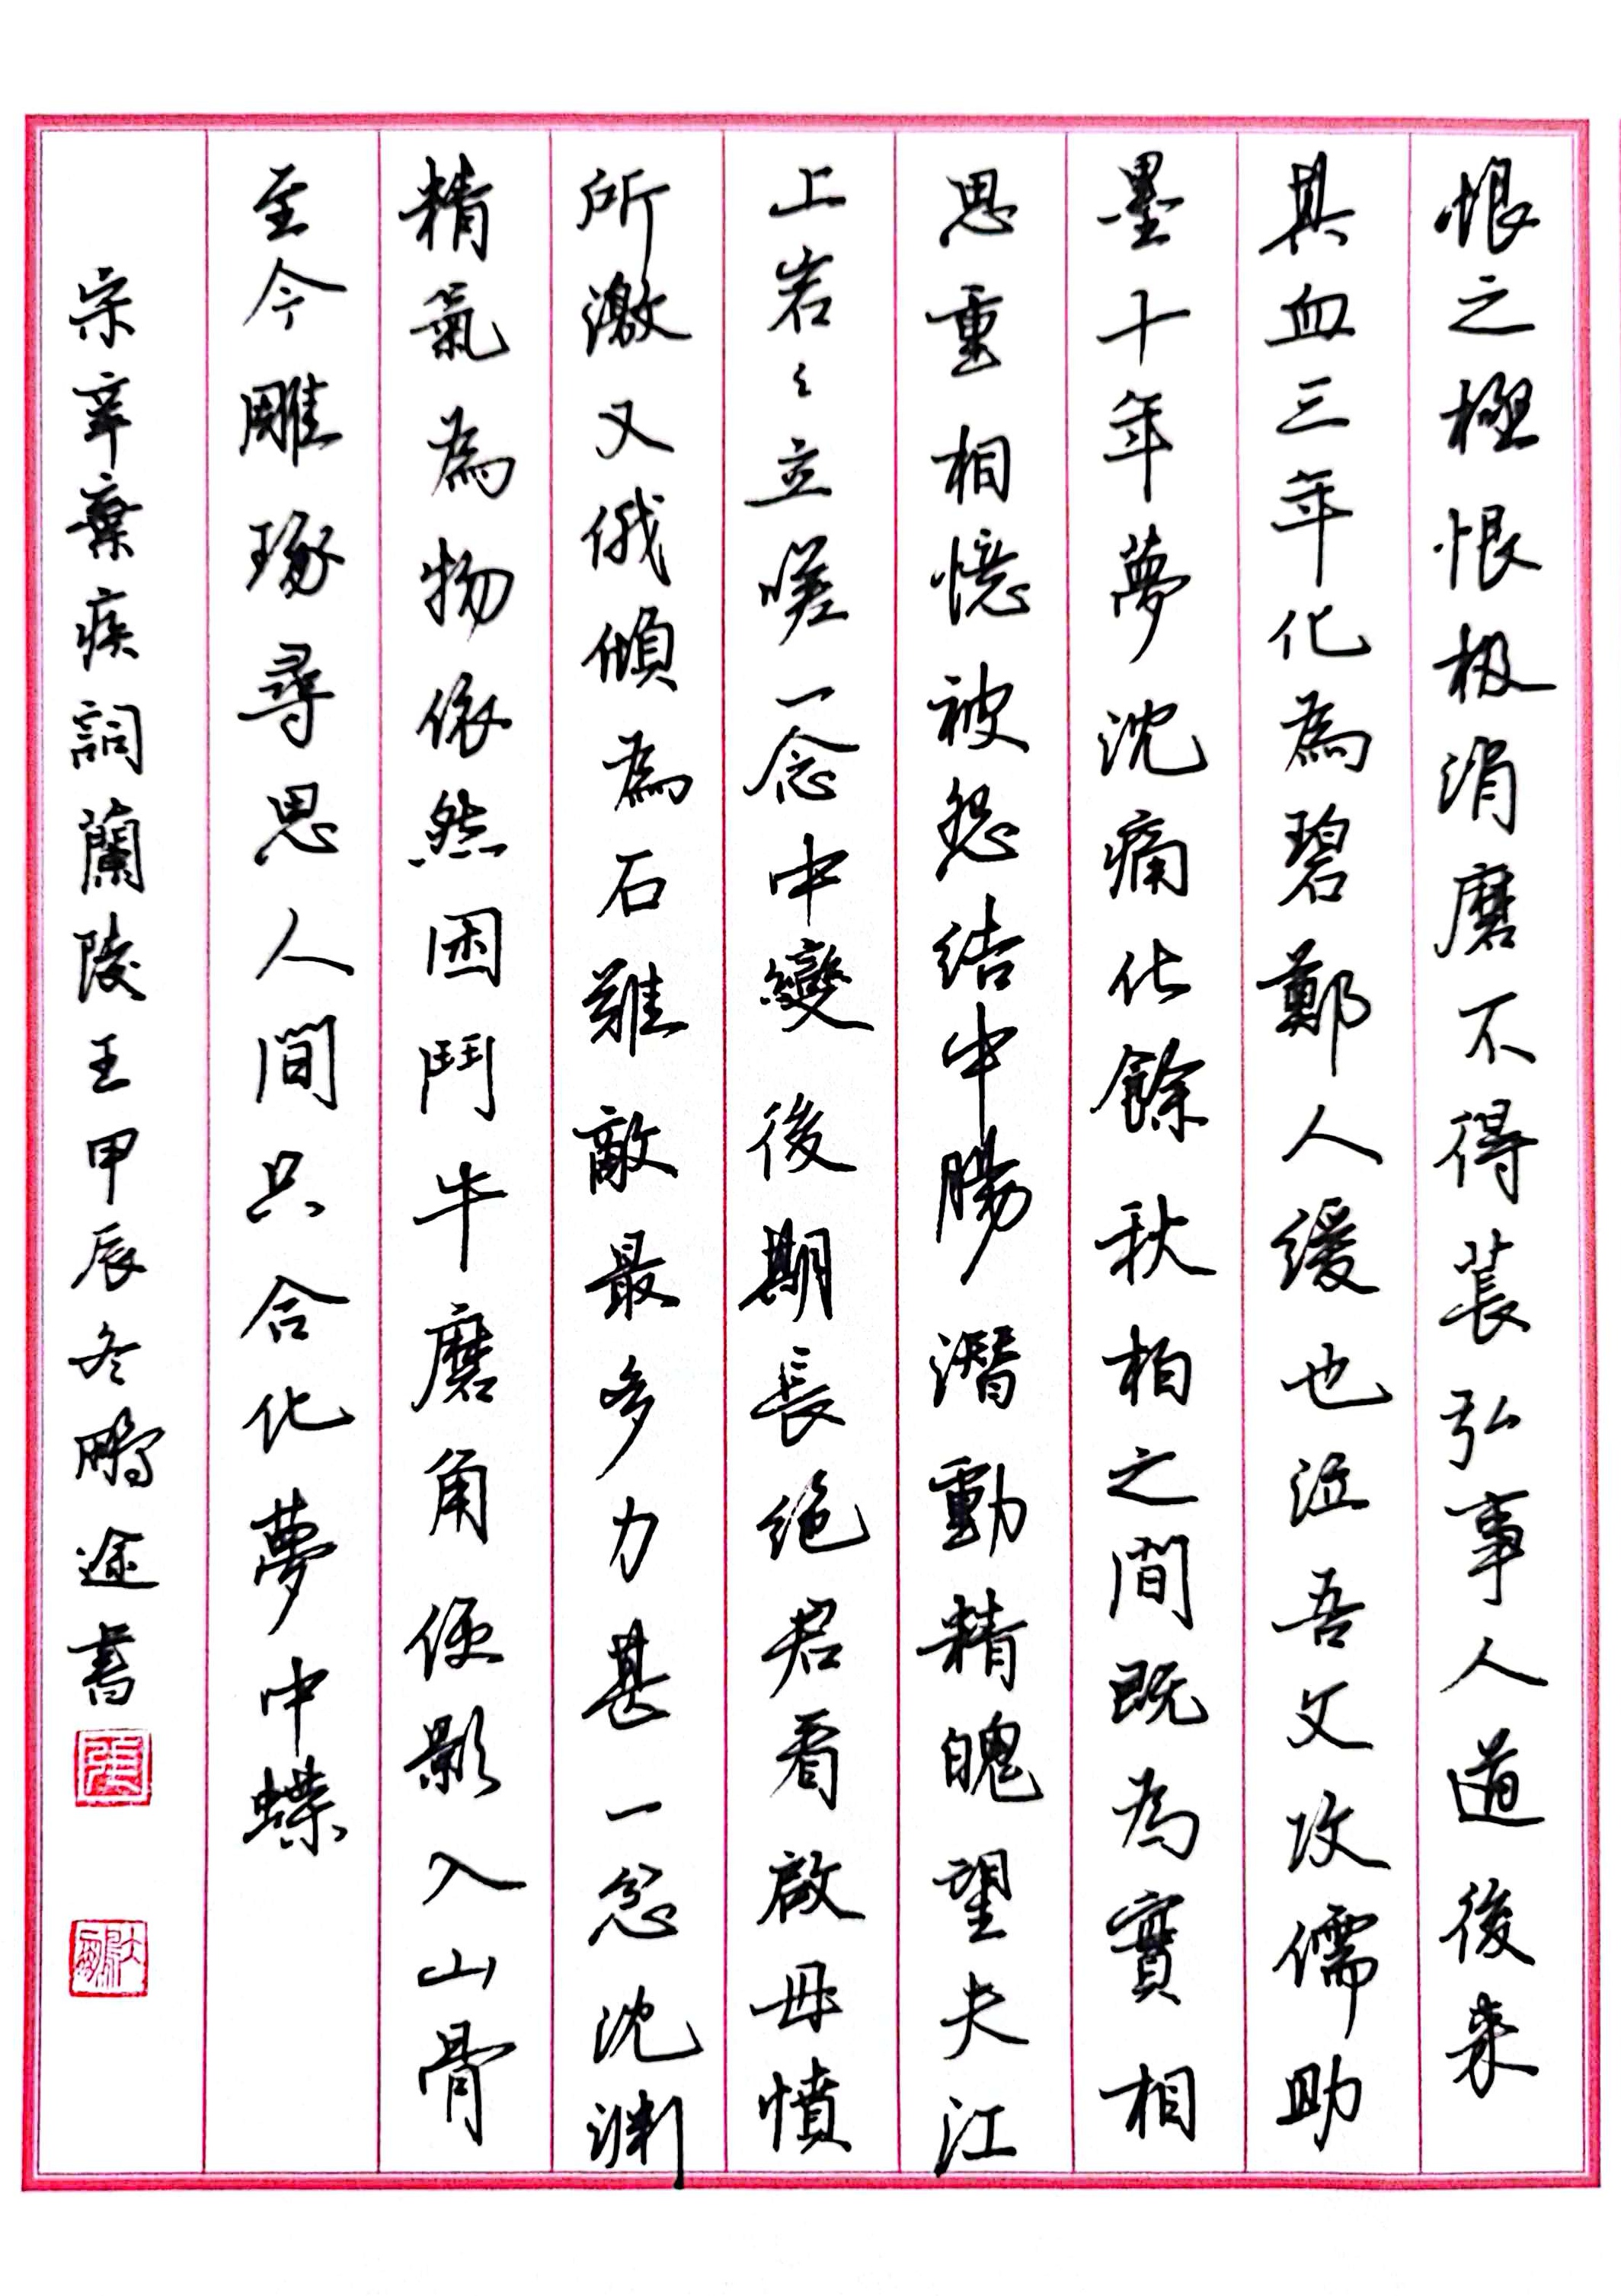 恨之極恨极涓磨不得萇弘事人道後来
其血三年化為碧鄭人緩也泣吾父攻儒助
墨十年夢沈痛化餘秋柏之間既為實相
思重相憶被怨結中腸潛動精魄望夫江
上岩〻立嗟一念中變後期長绝君看啟母憤
所激又俄傾為石難敵最多力甚一忿沈渊
精氣為物依然困鬥牛磨角便影入山骨
至今雕琢尋思人間只合化夢中蝶
宗辛棄疾詞蘭陵王甲辰冬鵬途書
張